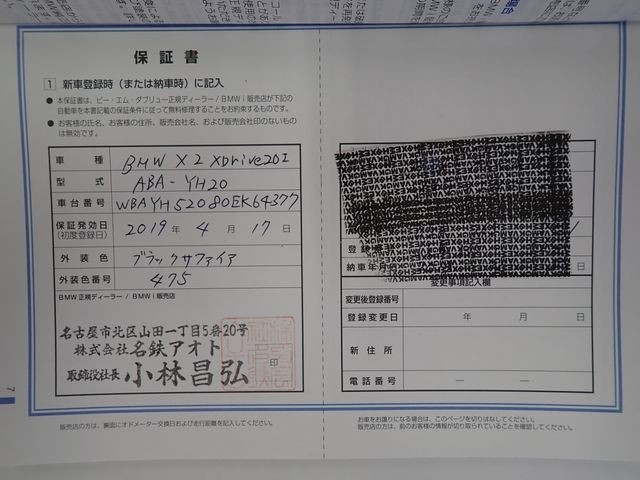 保証書
1 新車登録時(または納車時)に記入
● 本保証書は、ビー・エム・ダブリュー正規ディーラー/BMW i 販売店が下記の
自動車を本書記載の保証条件に従って無料修理することをお約束するものです。
● お客様の氏名、お客様の住所、販売会社名、および販売会社印のないもの
は無効です。
車種 BMW X2 XDrive20I
型式 ABA-YH20
車台番号 WBAYH52080EK64377
保証発効日
(初度登録日) 2019年 4月 17日
外装色 ブラックサファイア
外装色番号 475
BMW正規ディーラー/BMW i 販売店
名古屋市北区山田一丁目5番20号
株式会社名鉄アオト
取締役社長 小林昌弘 印
販売店の方は、裏面にオドメーター交換日および走行距離を記入してください。
7
納車年月 日
変更事項記入欄
変更後登録番号
登録変更日 年 月 日
新住所
電話番号 — —
お車をお譲りになる場合は、このページを切りはなしてください。
販売店の方は、前のお客様の情報が切り取られていることを確認してください。